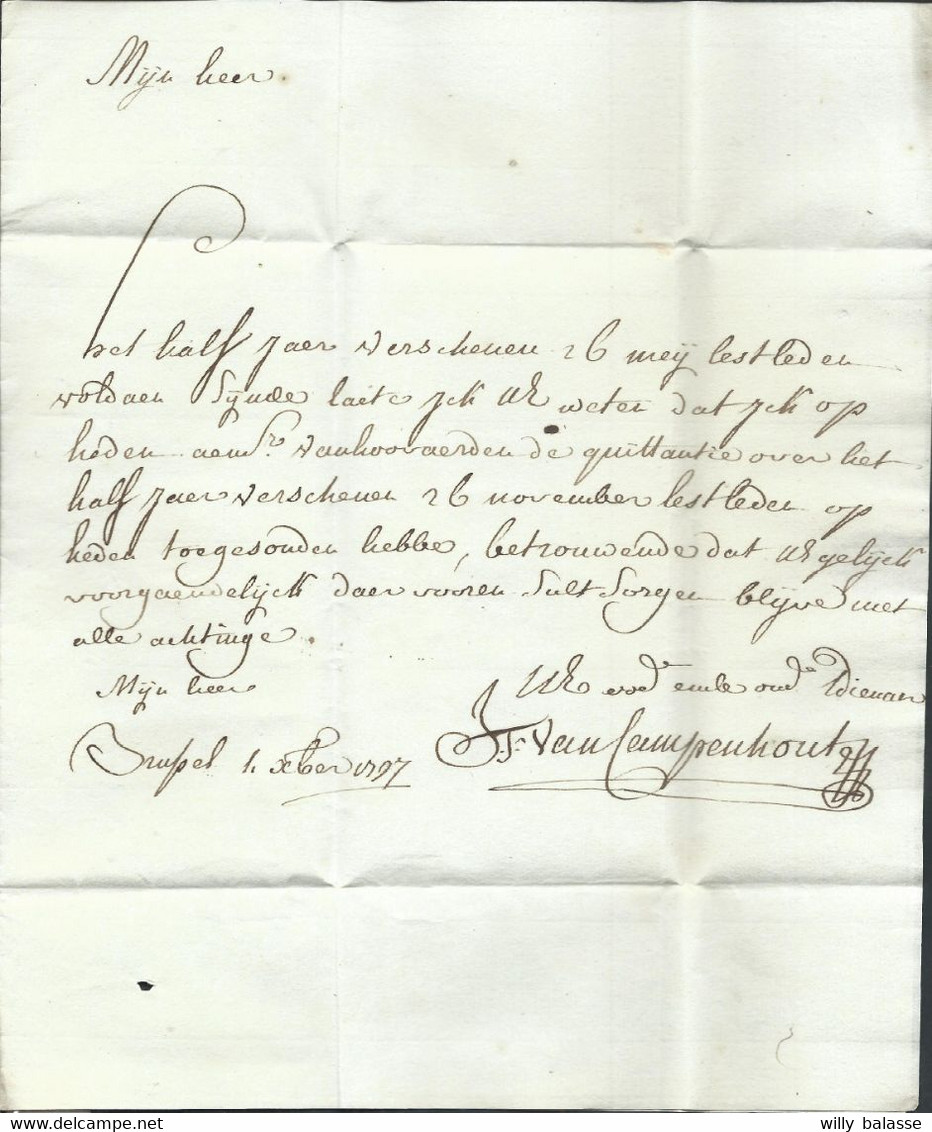 Mijn heer.
het half jaer verschenen 26 meij lestleden
voldaen Sijnde laete jck UE weten dat jck op
heden aen mr. vanhoovaerden de quittantie over het
half jaer verschenen 26 november lestleden op
heden toegesonden hebbe, betrouwende dat UE gelijck
voorgaendelijck daer vooren Sult Sorgen blijve met
alle achtinge.
Mijn heer
UE dienaer
Brussel 1. xber 1797
J: F: Van Campenhout
willy balasse